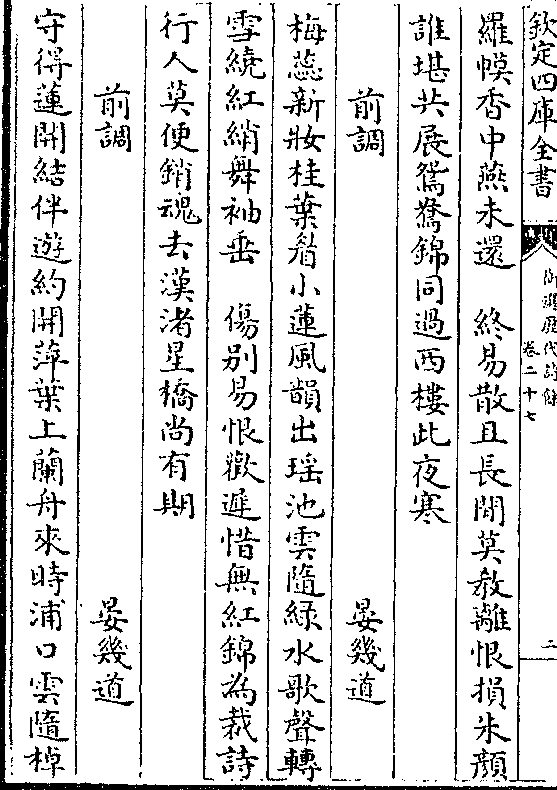 欽定四庫全書
御選歷代詩餘
卷二十七
二
羅幙香中燕未還　終易散且長閒莫教離恨損朱顔
誰堪共展鴛鴦錦同過西樓此夜寒
前調　晏幾道
梅蕊新妝桂葉眉小蓮風韻出瑶池雲隨緑水歌聲轉
雪繞紅綃舞袖垂　傷别易恨歡遲惜無紅錦為裁詩
行人莫便銷魂去漢渚星橋尚有期
前調　晏幾道
守得蓮開結伴遊約開萍葉上蘭舟來時浦口雲隨棹